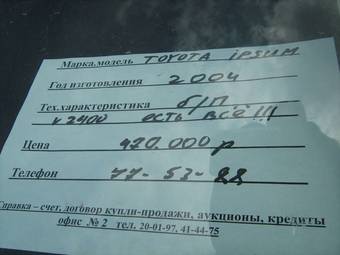 Марка,модель TOYOTA iPSUM
Год изготовления 2004
Тех.характеристика б/П
V 2400 есть всё!!!
Цена 420.000 р
Телефон 77-53-88
Справка – счет, договор купли-продажи, аукционы, кредиты
офис № 2 тел. 20-01-97, 41-44-75